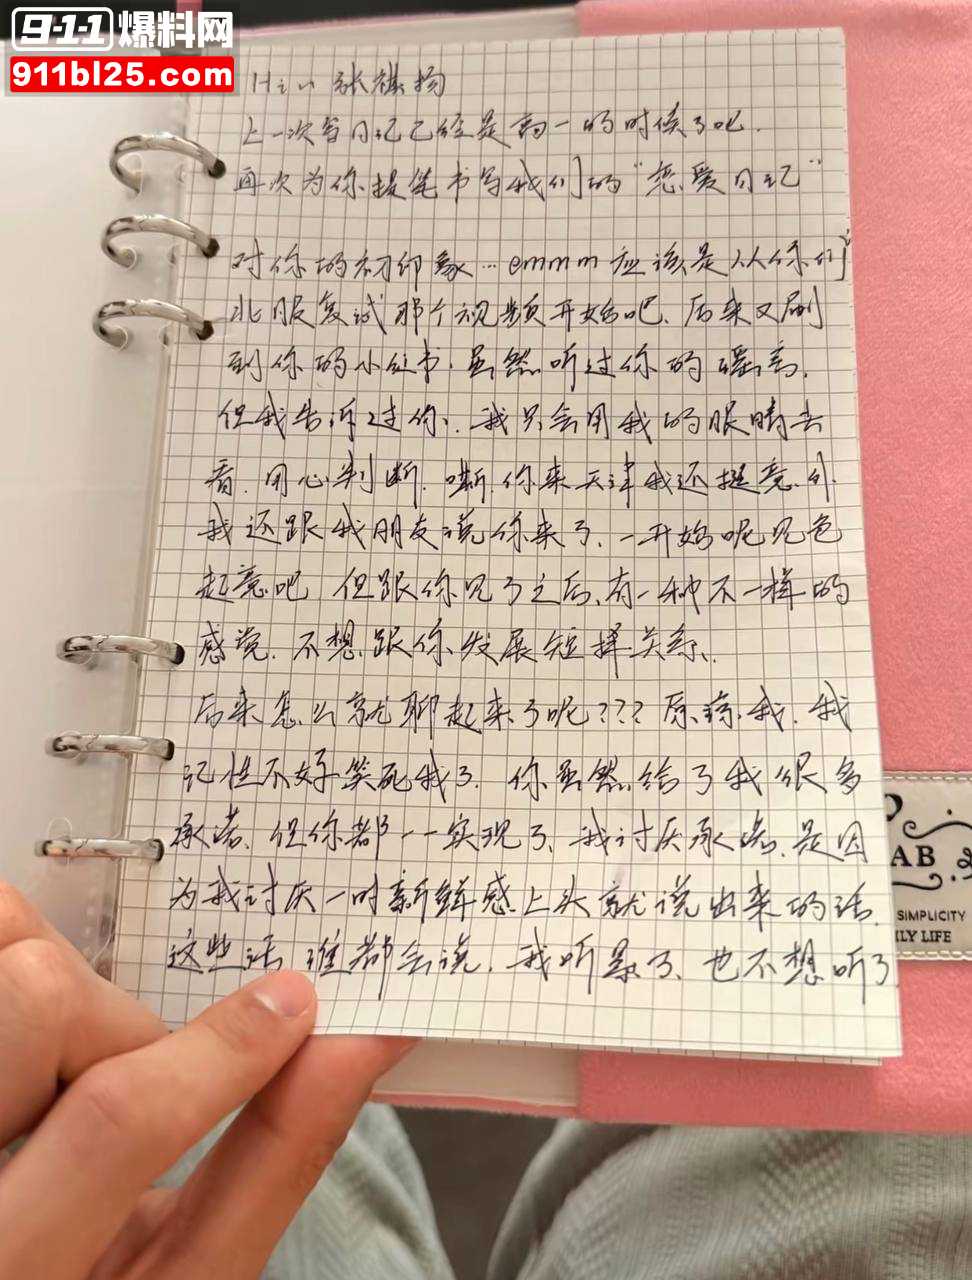 911爆料网
911bl25.com
Hi~ 张祺扬
上一次写日记已经是高一的时候了吧.
再次为你提笔书写我们的“恋爱日记”
对你的初印象…emmm应该是从你们
北服复试那个视频开始吧、后来又刷
到你的小红书、虽然听过你的谣言.
但我告诉过你、我只会用我的眼睛去
看.用心判断.嘶.你来天津我还挺意外.
我还跟我朋友说你来了、一开始呢见色
起意吧 但跟你见了之后、有一种不一样的
感觉.不想跟你发展短择关系、
后来怎么就聊起来了呢???原谅我.我
记性不好笑死我了.你虽然给了我很多
承诺.但你都一一实现了、我讨厌承诺.是因
为我讨厌一时新鲜感上头就说出来的话.
这些话谁都会说、我听累了、也不想听了
AB
SIMPLICITY
ILY LIFE